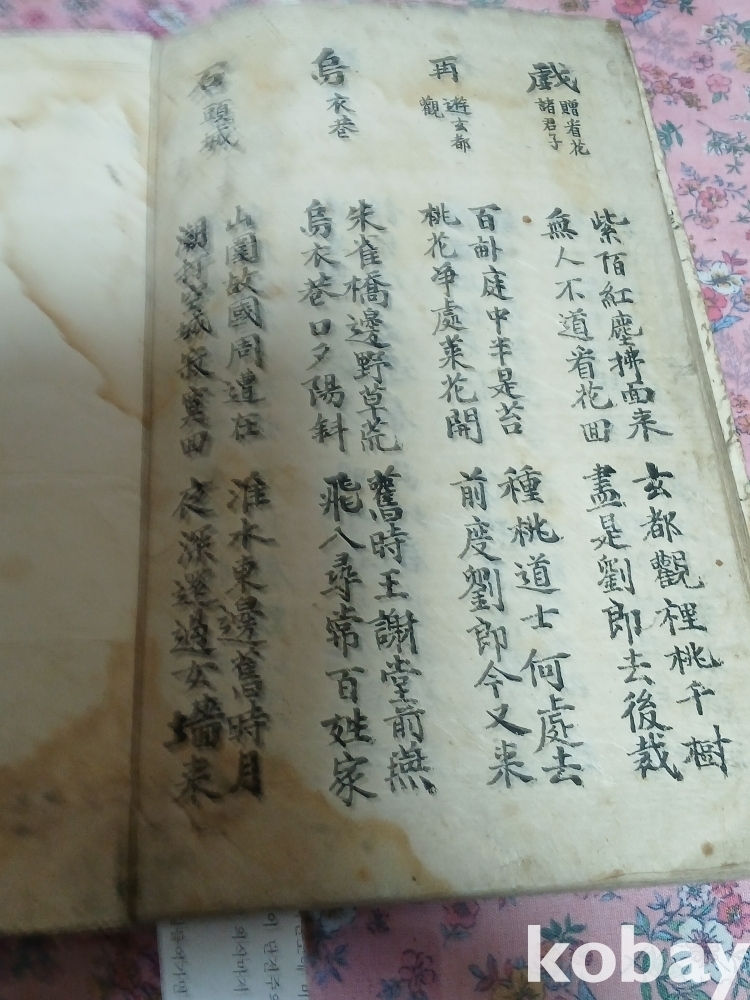 戱贈看花諸君子
紫陌紅塵拂面来 玄都觀裡桃千樹
無人不道看花回 盡是劉郎去後栽
再遊玄都觀
百畝庭中半是苔 種桃道士何處去
桃花净處菜花開 前度劉郎今又来
烏衣巷
朱雀橋邊野草荒 舊時王謝堂前燕
烏衣巷口夕陽斜 飛入尋常百姓家
石頭城
山圍故國周遭在 淮水東邊舊時月
潮打空城寂寞回 夜深還過女墻来
kobay